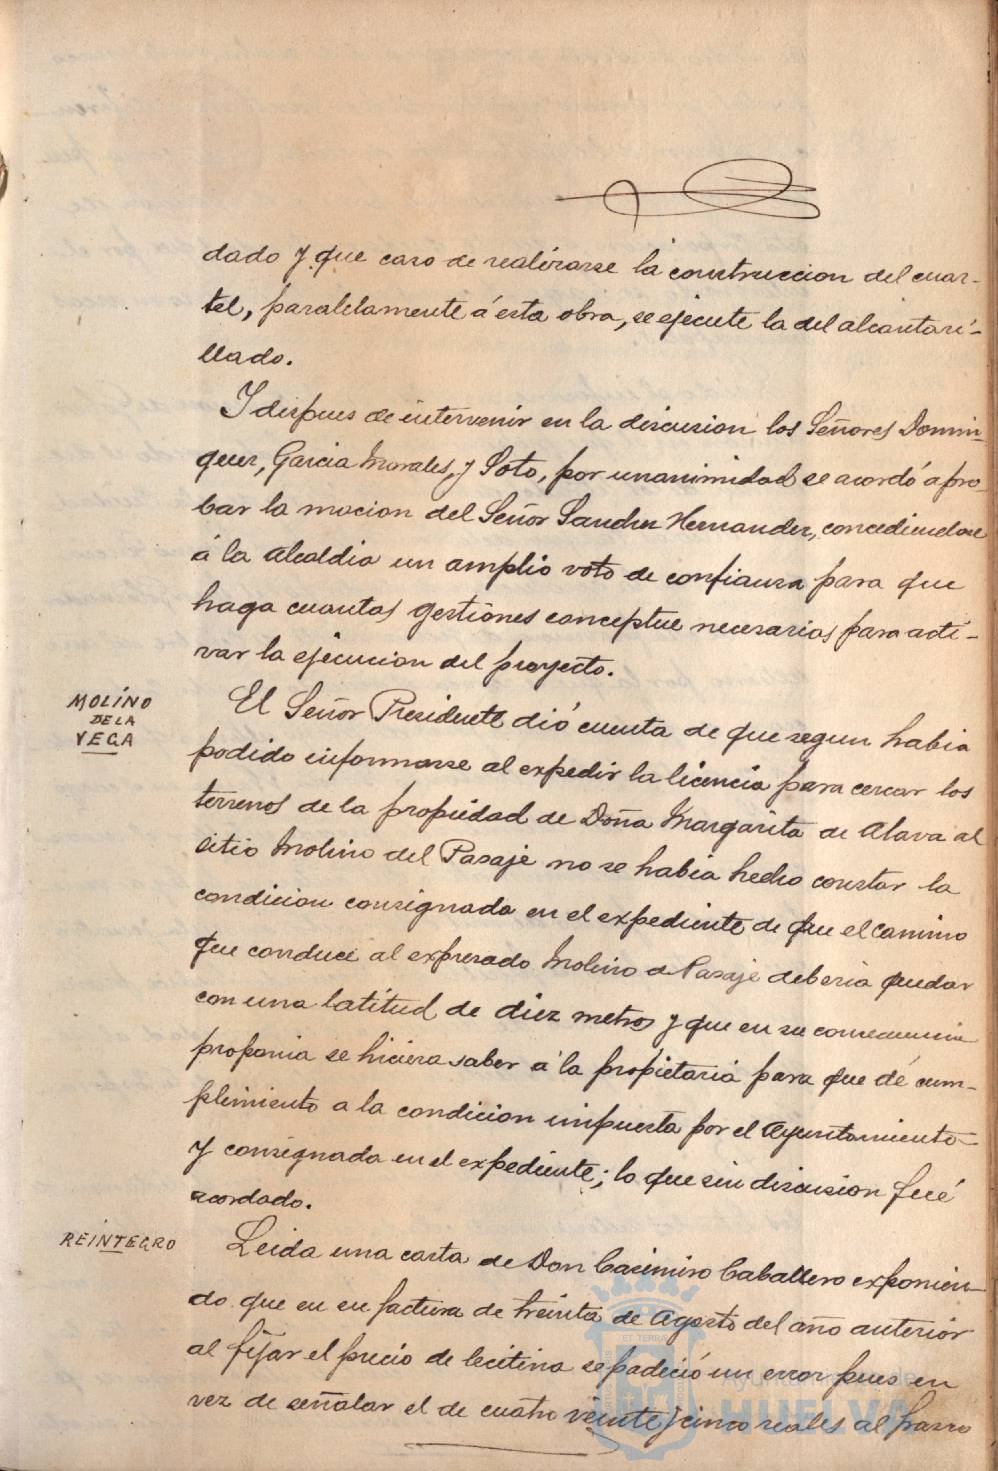 dado y que caso de realizarse la construccion del cuar-
tel, paralelamente á esta obra, se ejecute la del alcantari-
llado.
Y despues de intervenir en la discusion los Señores Domin-
guez, Garcia Morales, y Soto, por unanimidad se acordó apro-
bar la mocion del Señor Sanchez Hernandez, concediendose
á la Alcaldia un amplio voto de confianza para que
haga cuantas gestiones conceptue necesarias para acti-
var la ejecucion del proyecto.
MOLINO
DE LA
VEGA
El Señor Presidente dió cuenta de que segun habia
podido informarse al expedir la licencia para cercar los
terrenos de la propiedad de Doña Margarita de Alava al
sitio Molino del Pasaje no se habia hecho constar la
condicion consignada en el expediente de que el camino
que conduce al expresado Molino de Pasaje deberia quedar
con una latitud de diez metros y que en su consecuencia
proponia se hiciera saber á la propietaria para que dé cum-
plimiento a la condicion impuesta por el Ayuntamiento
y consignada en el expediente; lo que sin discusion fué
acordado.
REINTEGRO
Leida una carta de Don Casimiro Caballero exponien-
do que en su factura de treinta de Agosto del año anterior
al fijar el precio de lecitina se padeció un error pues en
vez de señalar el de cuatro veinte y cinco reales al frasco
ET TERRA
Ayuntamiento de
HUELVA